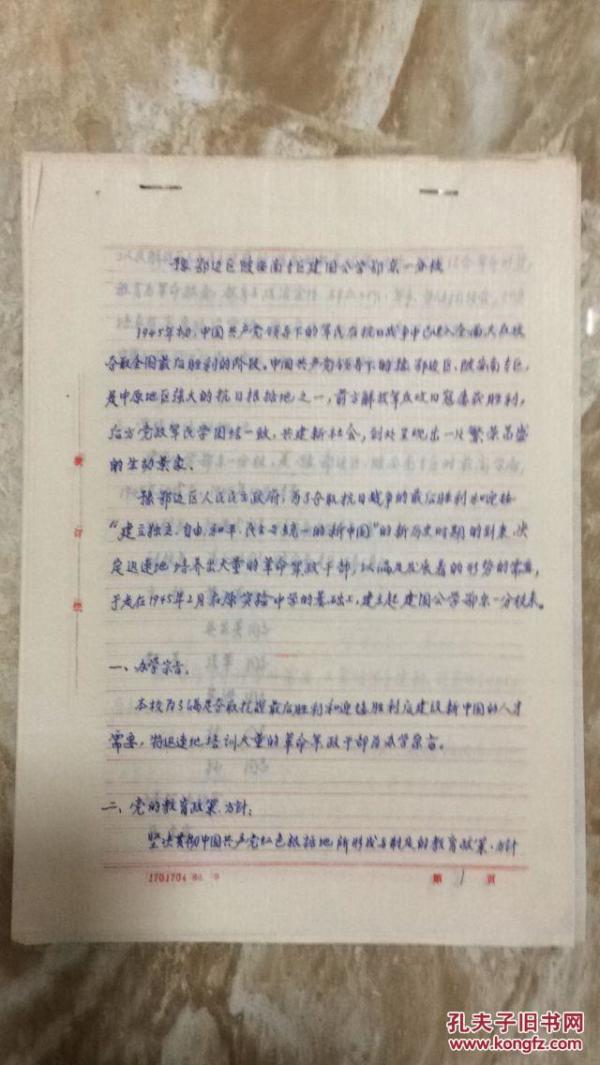 豫鄂边区陂安南专区建国公学鄂东一分校
1945年初,中国共产党领导下的军民在抗日战争中已进入全面大反攻
夺取全国最后胜利的阶段。中国共产党领导下的豫鄂边区,陂安南专区,
是中原地区强大的抗日根据地之一,前方解放军反攻日寇屡获胜利,
后方党政军民学团结一致,共建新社会,到处呈现出一片繁荣昌盛
的生动景象。
豫鄂边区人民民主政府,为了夺取抗日战争的最后胜利和迎接
“建立独立、自由、和平、民主与统一的新中国”的新历史时期的到来,决
定迅速地培养出大量的革命军政干部,以满足发展着的形势的需要,
于是在1945年2月在原实验中学的基础上,建立起建国公学鄂东一分校来。
一、办学宗旨:
本校为了满足夺取抗战最后胜利和迎接胜利后建设新中国的人才
需要,特迅速地培训大量的革命军政干部为办学宗旨。
二、党的教育政策、方针:
坚决贯彻中国共产党红色根据地所形成与制定的教育政策、方针
装
订
线
1701704 86. 9
第 1 页
孔夫子旧书网
www.kongfz.com